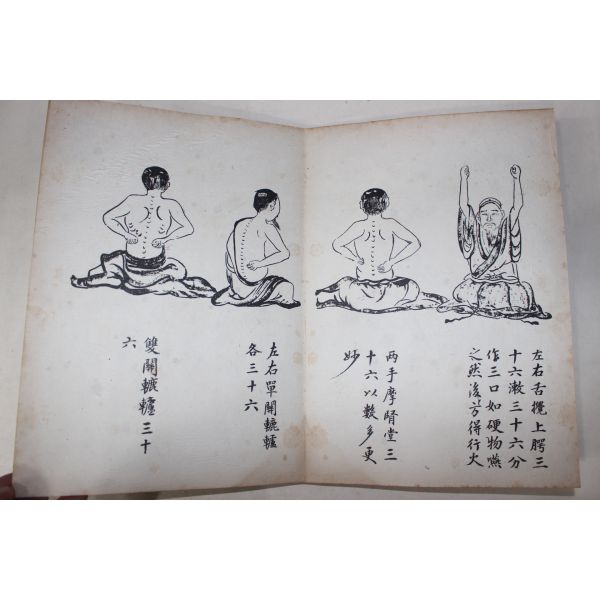 左右舌攪上腭三
十六漱三十六分
作三口如硬物嚥
之然後方得行火
两手摩腎堂三
十六以數多更
妙
左右單關轆轤
各三十六
雙關轆轤三十
六